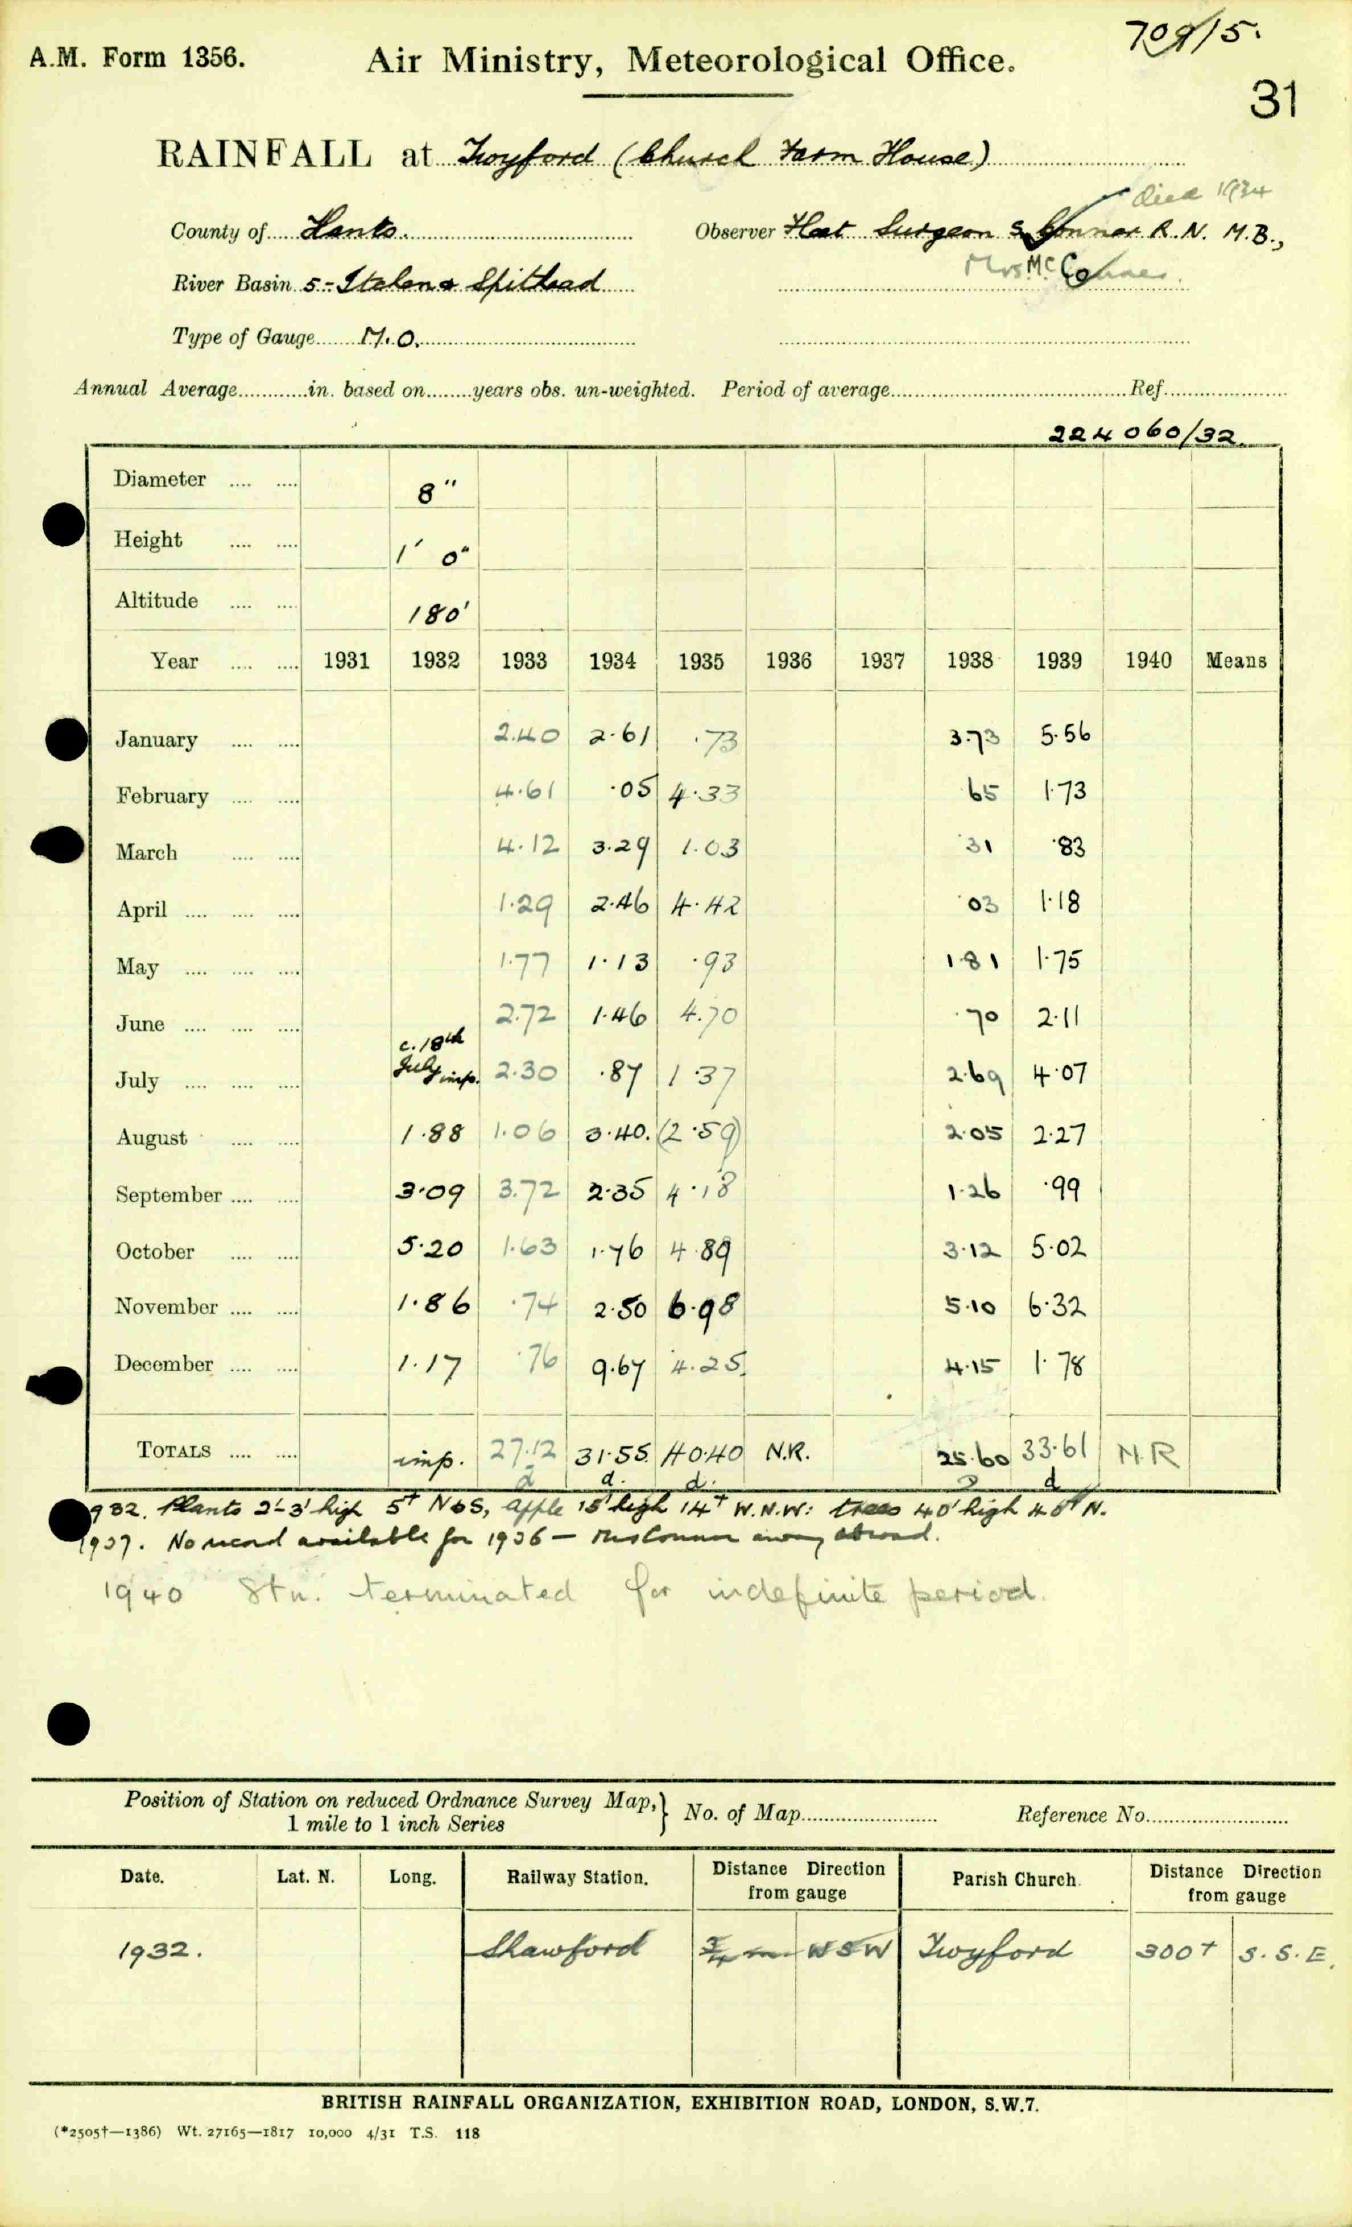 709/15.
A.M. Form 1356. Air Ministry, Meteorological Office.
31
RAINFALL at Twyford (Church Farm House)
died 1934
County of Hants. Observer Fleet Surgeon S. Connor R. N. M.B.,
Mrs McConnor.
River Basin 5-Itchen & Spithead
Type of Gauge M.O.
Annual Average in. based on years obs. un-weighted. Period of average Ref.
224060/32.
Diameter 8"
Height 1' 0"
Altitude 180'
Year 1931 1932 1933 1934 1935 1936 1937 1938 1939 1940 Means
January 2.40 2.61 .73 3.73 5.56
February 4.61 .05 4.33 65 1.73
March 4.12 3.29 1.03 .31 .83
April 1.29 2.46 4.42 .03 1.18
May 1.77 1.13 .93 1.81 1.75
June 2.72 1.46 4.70 .70 2.11
July c.18th July imp. 2.30 .87 1.37 2.69 4.07
August 1.88 1.06 3.40. (2.59) 2.05 2.27
September 3.09 3.72 2.35 4.18 1.26 .99
October 5.20 1.63 1.76 4.89 3.12 5.02
November 1.86 .74 2.50 6.98 5.10 6.32
December 1.17 .76 9.67 4.25. 4.15 1.78
TOTALS imp. 27.12 31.55 40.40 N.R. 25.60 33.61 N.R
d d. d. d
932. Plants 2'-3' high 5+ N & S, apple 15' high 14+ W.N.W: trees 40' high 40+ N.
1937. No record available for 1936 — Mrs Connor away abroad.
1940 Stn. terminated for indefinite period.
Position of Station on reduced Ordnance Survey Map, 1 mile to 1 inch Series } No. of Map Reference No.
Date. Lat. N. Long. Railway Station. Distance Direction from gauge Parish Church. Distance Direction from gauge
1932. Shawford 3/4 m WSW Twyford 300+ S.S.E.
BRITISH RAINFALL ORGANIZATION, EXHIBITION ROAD, LONDON, S.W.7.
(*2505†—1386) Wt. 27165—1817 10,000 4/31 T.S. 118